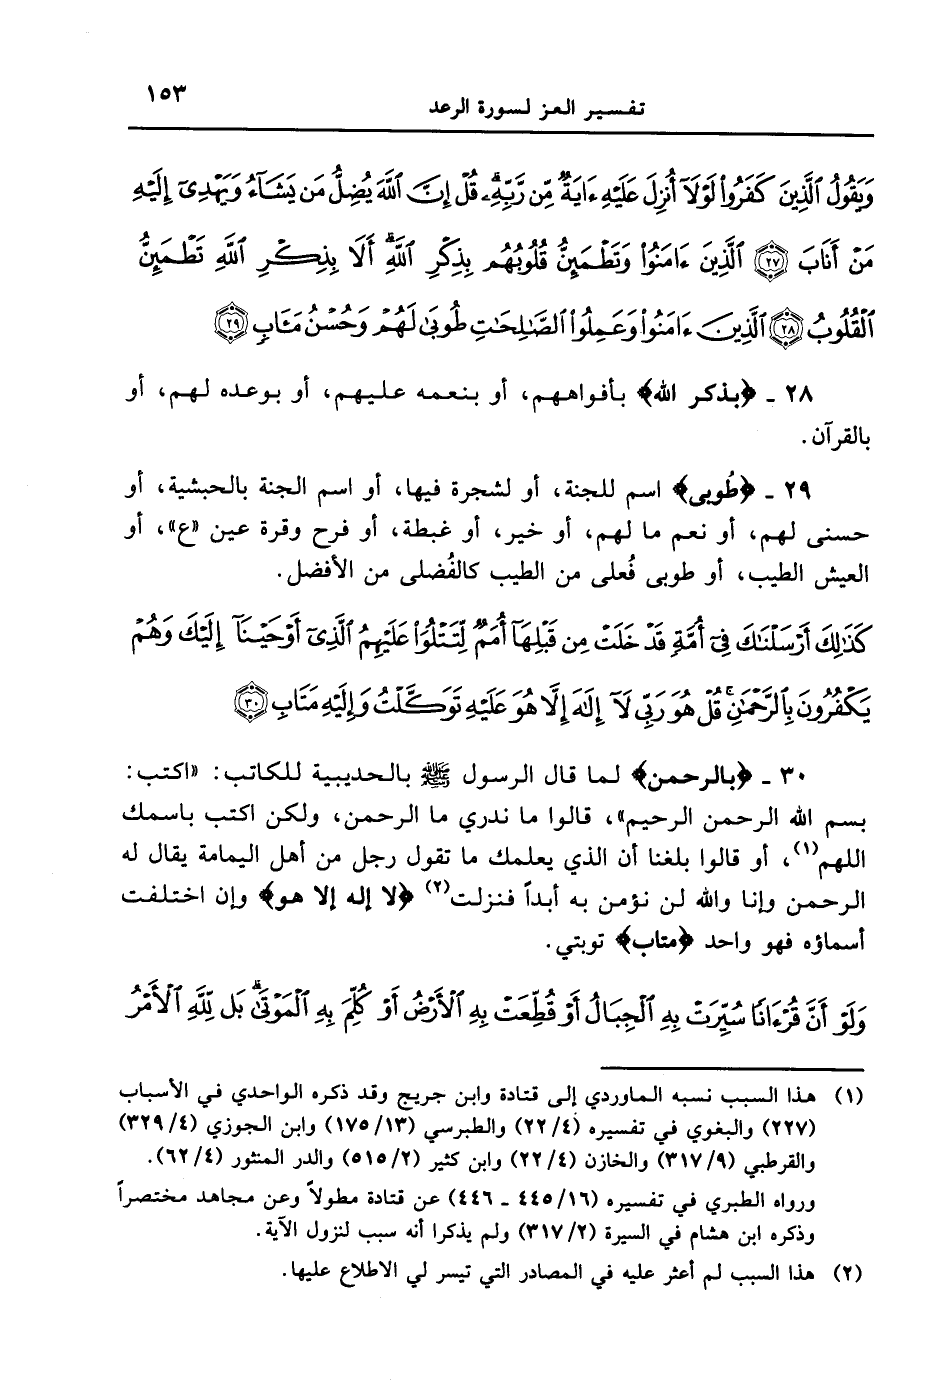 تفسير العز لسورة الرعد ١٥٣
وَيَقُولُ ٱلَّذِينَ كَفَرُوا۟ لَوْلَآ أُنزِلَ عَلَيْهِ ءَايَةٌ مِّن رَّبِّهِۦ ۗ قُلْ إِنَّ ٱللَّهَ يُضِلُّ مَن يَشَآءُ وَيَهْدِىٓ إِلَيْهِ
مَنْ أَنَابَ ﴿٢٧﴾ ٱلَّذِينَ ءَامَنُوا۟ وَتَطْمَئِنُّ قُلُوبُهُم بِذِكْرِ ٱللَّهِ ۗ أَلَا بِذِكْرِ ٱللَّهِ تَطْمَئِنُّ
ٱلْقُلُوبُ ﴿٢٨﴾ ٱلَّذِينَ ءَامَنُوا۟ وَعَمِلُوا۟ ٱلصَّـٰلِحَـٰتِ طُوبَىٰ لَهُمْ وَحُسْنُ مَـَٔابٍ ﴿٢٩﴾
٢٨ ـ ﴿بذكر الله﴾ بأفواههم، أو بنعمه عليهم، أو بوعده لهم، أو
بالقرآن.
٢٩ ـ ﴿طُوبى﴾ اسم للجنة، أو لشجرة فيها، أو اسم الجنة بالحبشية، أو
حسنى لهم، أو نعم ما لهم، أو خير، أو غبطة، أو فرح وقرة عين «ع»، أو
العيش الطيب، أو طوبى فُعلى من الطيب كالفُضلى من الأفضل.
كَذَٰلِكَ أَرْسَلْنَـٰكَ فِىٓ أُمَّةٍ قَدْ خَلَتْ مِن قَبْلِهَآ أُمَمٌ لِّتَتْلُوَا۟ عَلَيْهِمُ ٱلَّذِىٓ أَوْحَيْنَآ إِلَيْكَ وَهُمْ
يَكْفُرُونَ بِٱلرَّحْمَـٰنِ ۚ قُلْ هُوَ رَبِّى لَآ إِلَـٰهَ إِلَّا هُوَ عَلَيْهِ تَوَكَّلْتُ وَإِلَيْهِ مَتَابِ ﴿٣٠﴾
٣٠ ـ ﴿بالرحمن﴾ لما قال الرسول ﷺ بالحديبية للكاتب: «اكتب:
بسم الله الرحمن الرحيم»، قالوا ما ندري ما الرحمن، ولكن اكتب باسمك
اللهم(١)، أو قالوا بلغنا أن الذي يعلمك ما تقول رجل من أهل اليمامة يقال له
الرحمن وإنا والله لن نؤمن به أبداً فنزلت(٢) ﴿لا إله إلا هو﴾ وإن اختلفت
أسماؤه فهو واحد ﴿متاب﴾ توبتي.
وَلَوْ أَنَّ قُرْءَانًا سُيِّرَتْ بِهِ ٱلْجِبَالُ أَوْ قُطِّعَتْ بِهِ ٱلْأَرْضُ أَوْ كُلِّمَ بِهِ ٱلْمَوْتَىٰ ۗ بَل لِّلَّهِ ٱلْأَمْرُ
(١) هذا السبب نسبه الماوردي إلى قتادة وابن جريج وقد ذكره الواحدي في الأسباب
(٢٢٧) والبغوي في تفسيره (٤/٢٢) والطبرسي (١٣/١٧٥) وابن الجوزي (٤/٣٢٩)
والقرطبي (٩/٣١٧) والخازن (٤/٢٢) وابن كثير (٢/٥١٥) والدر المنثور (٤/٦٢).
ورواه الطبري في تفسيره (١٦/٤٤٥ ـ ٤٤٦) عن قتادة مطولاً وعن مجاهد مختصراً
وذكره ابن هشام في السيرة (٢/٣١٧) ولم يذكرا أنه سبب لنزول الآية.
(٢) هذا السبب لم أعثر عليه في المصادر التي تيسر لي الاطلاع عليها.